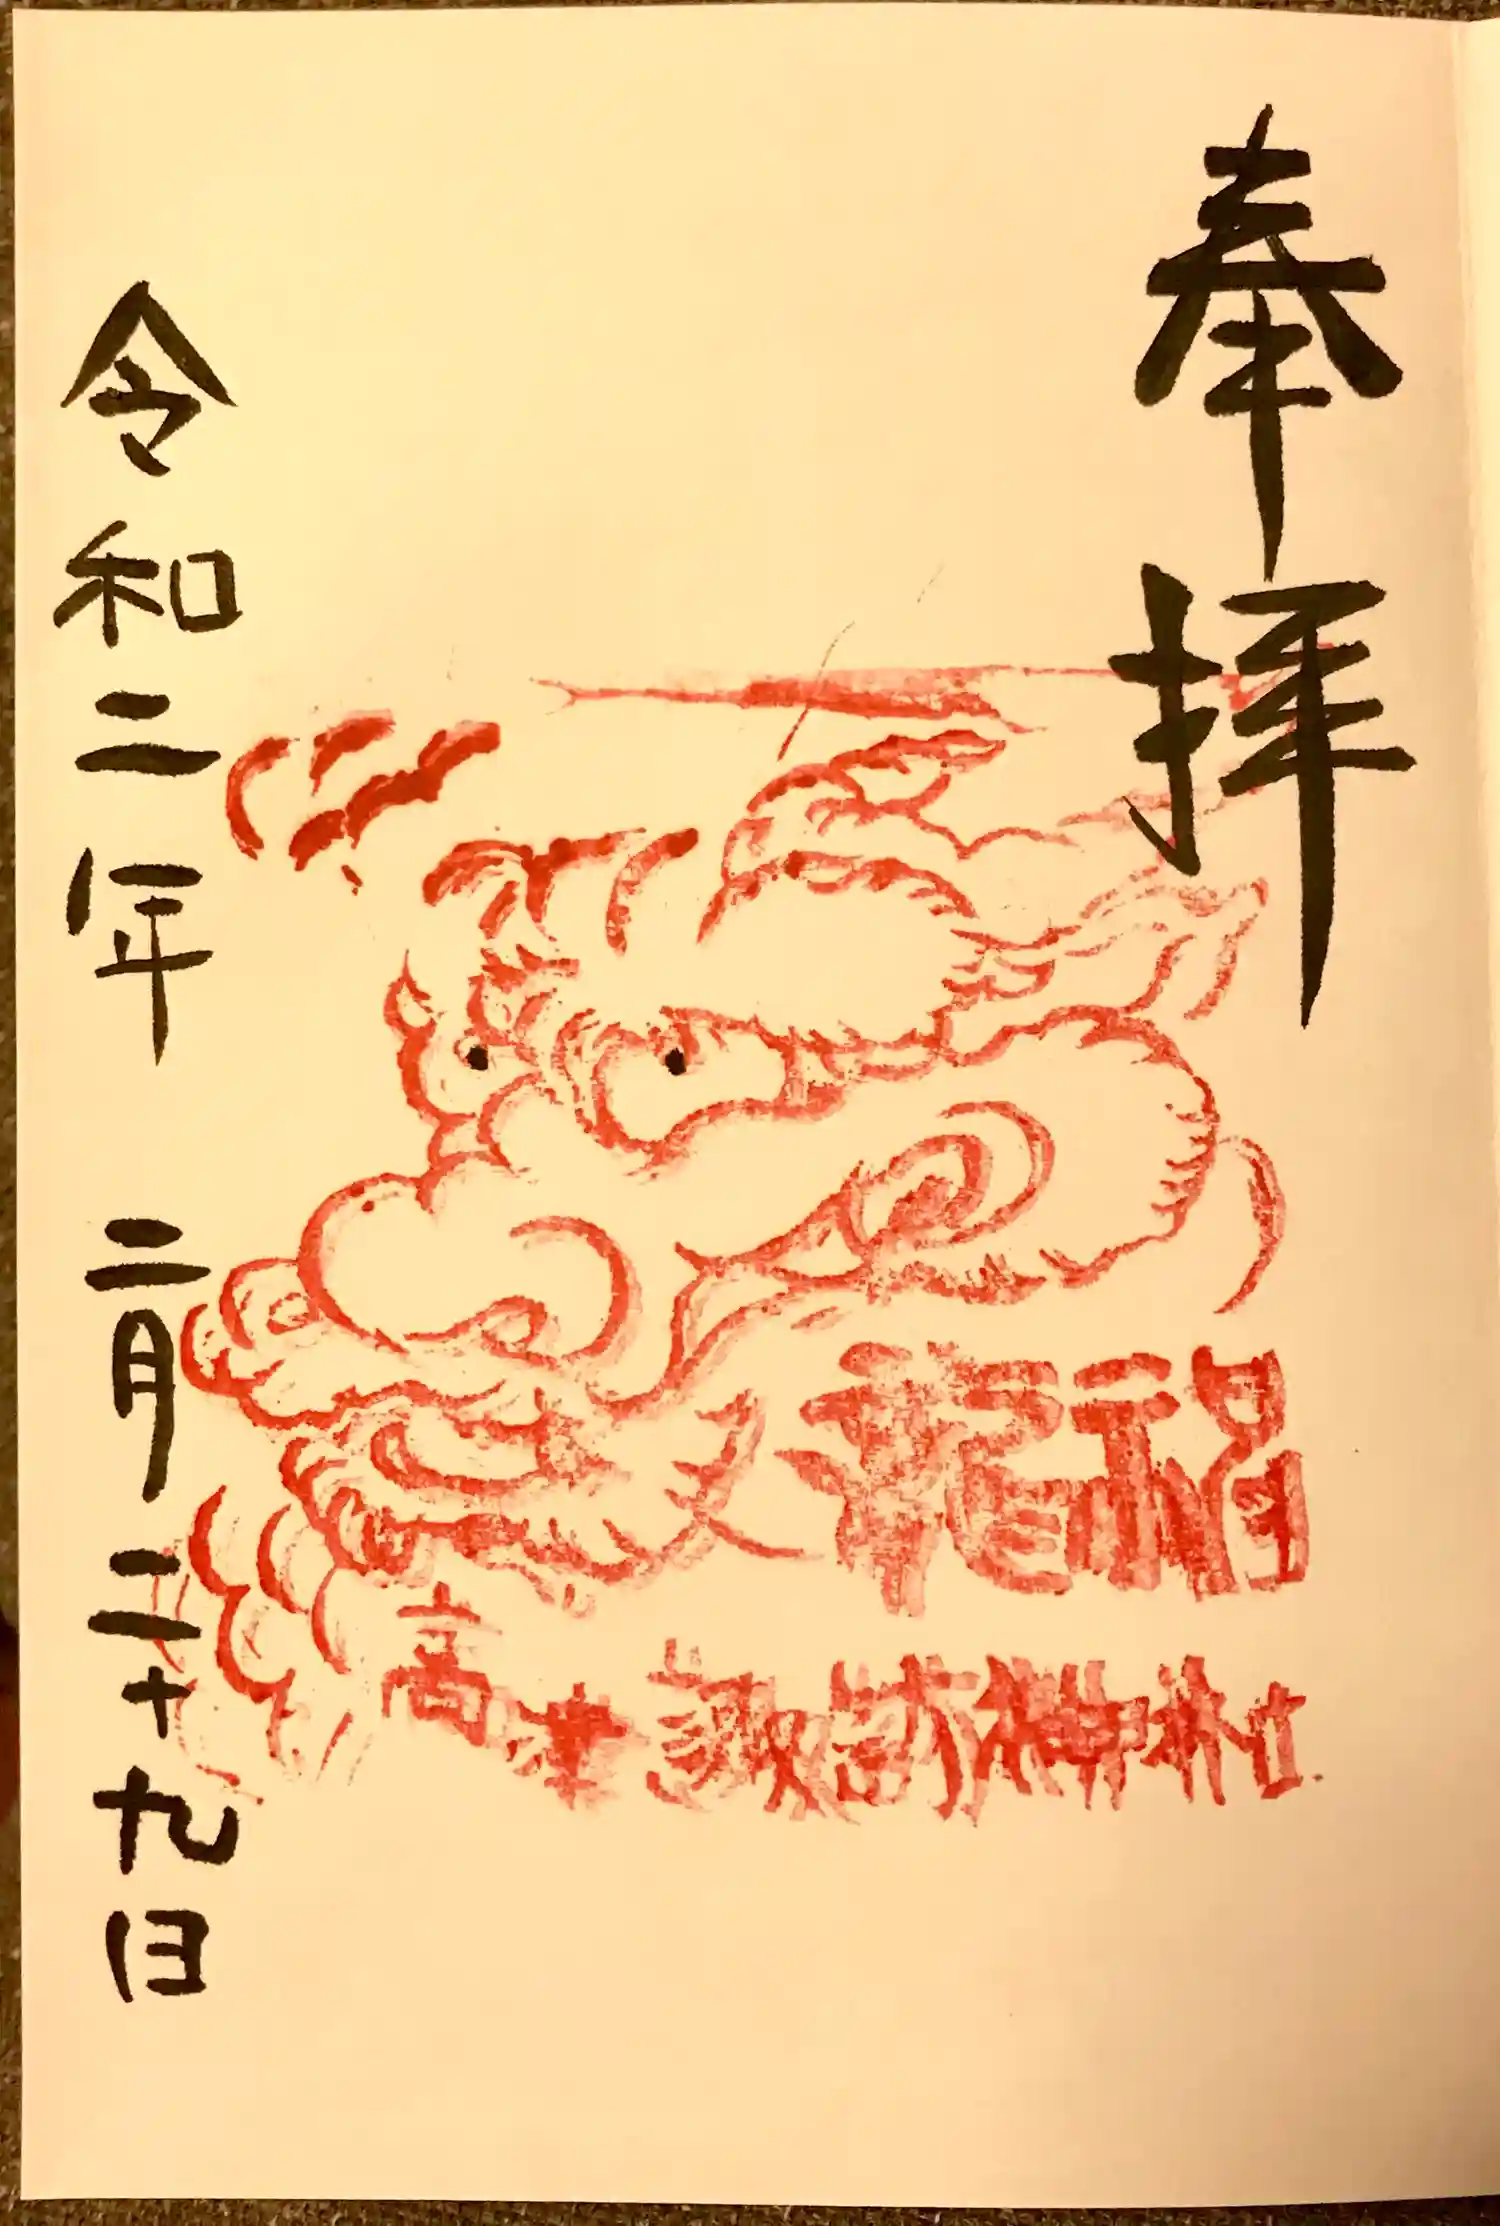 奉拝
高津諏訪神社
令和二年 二月二十九日